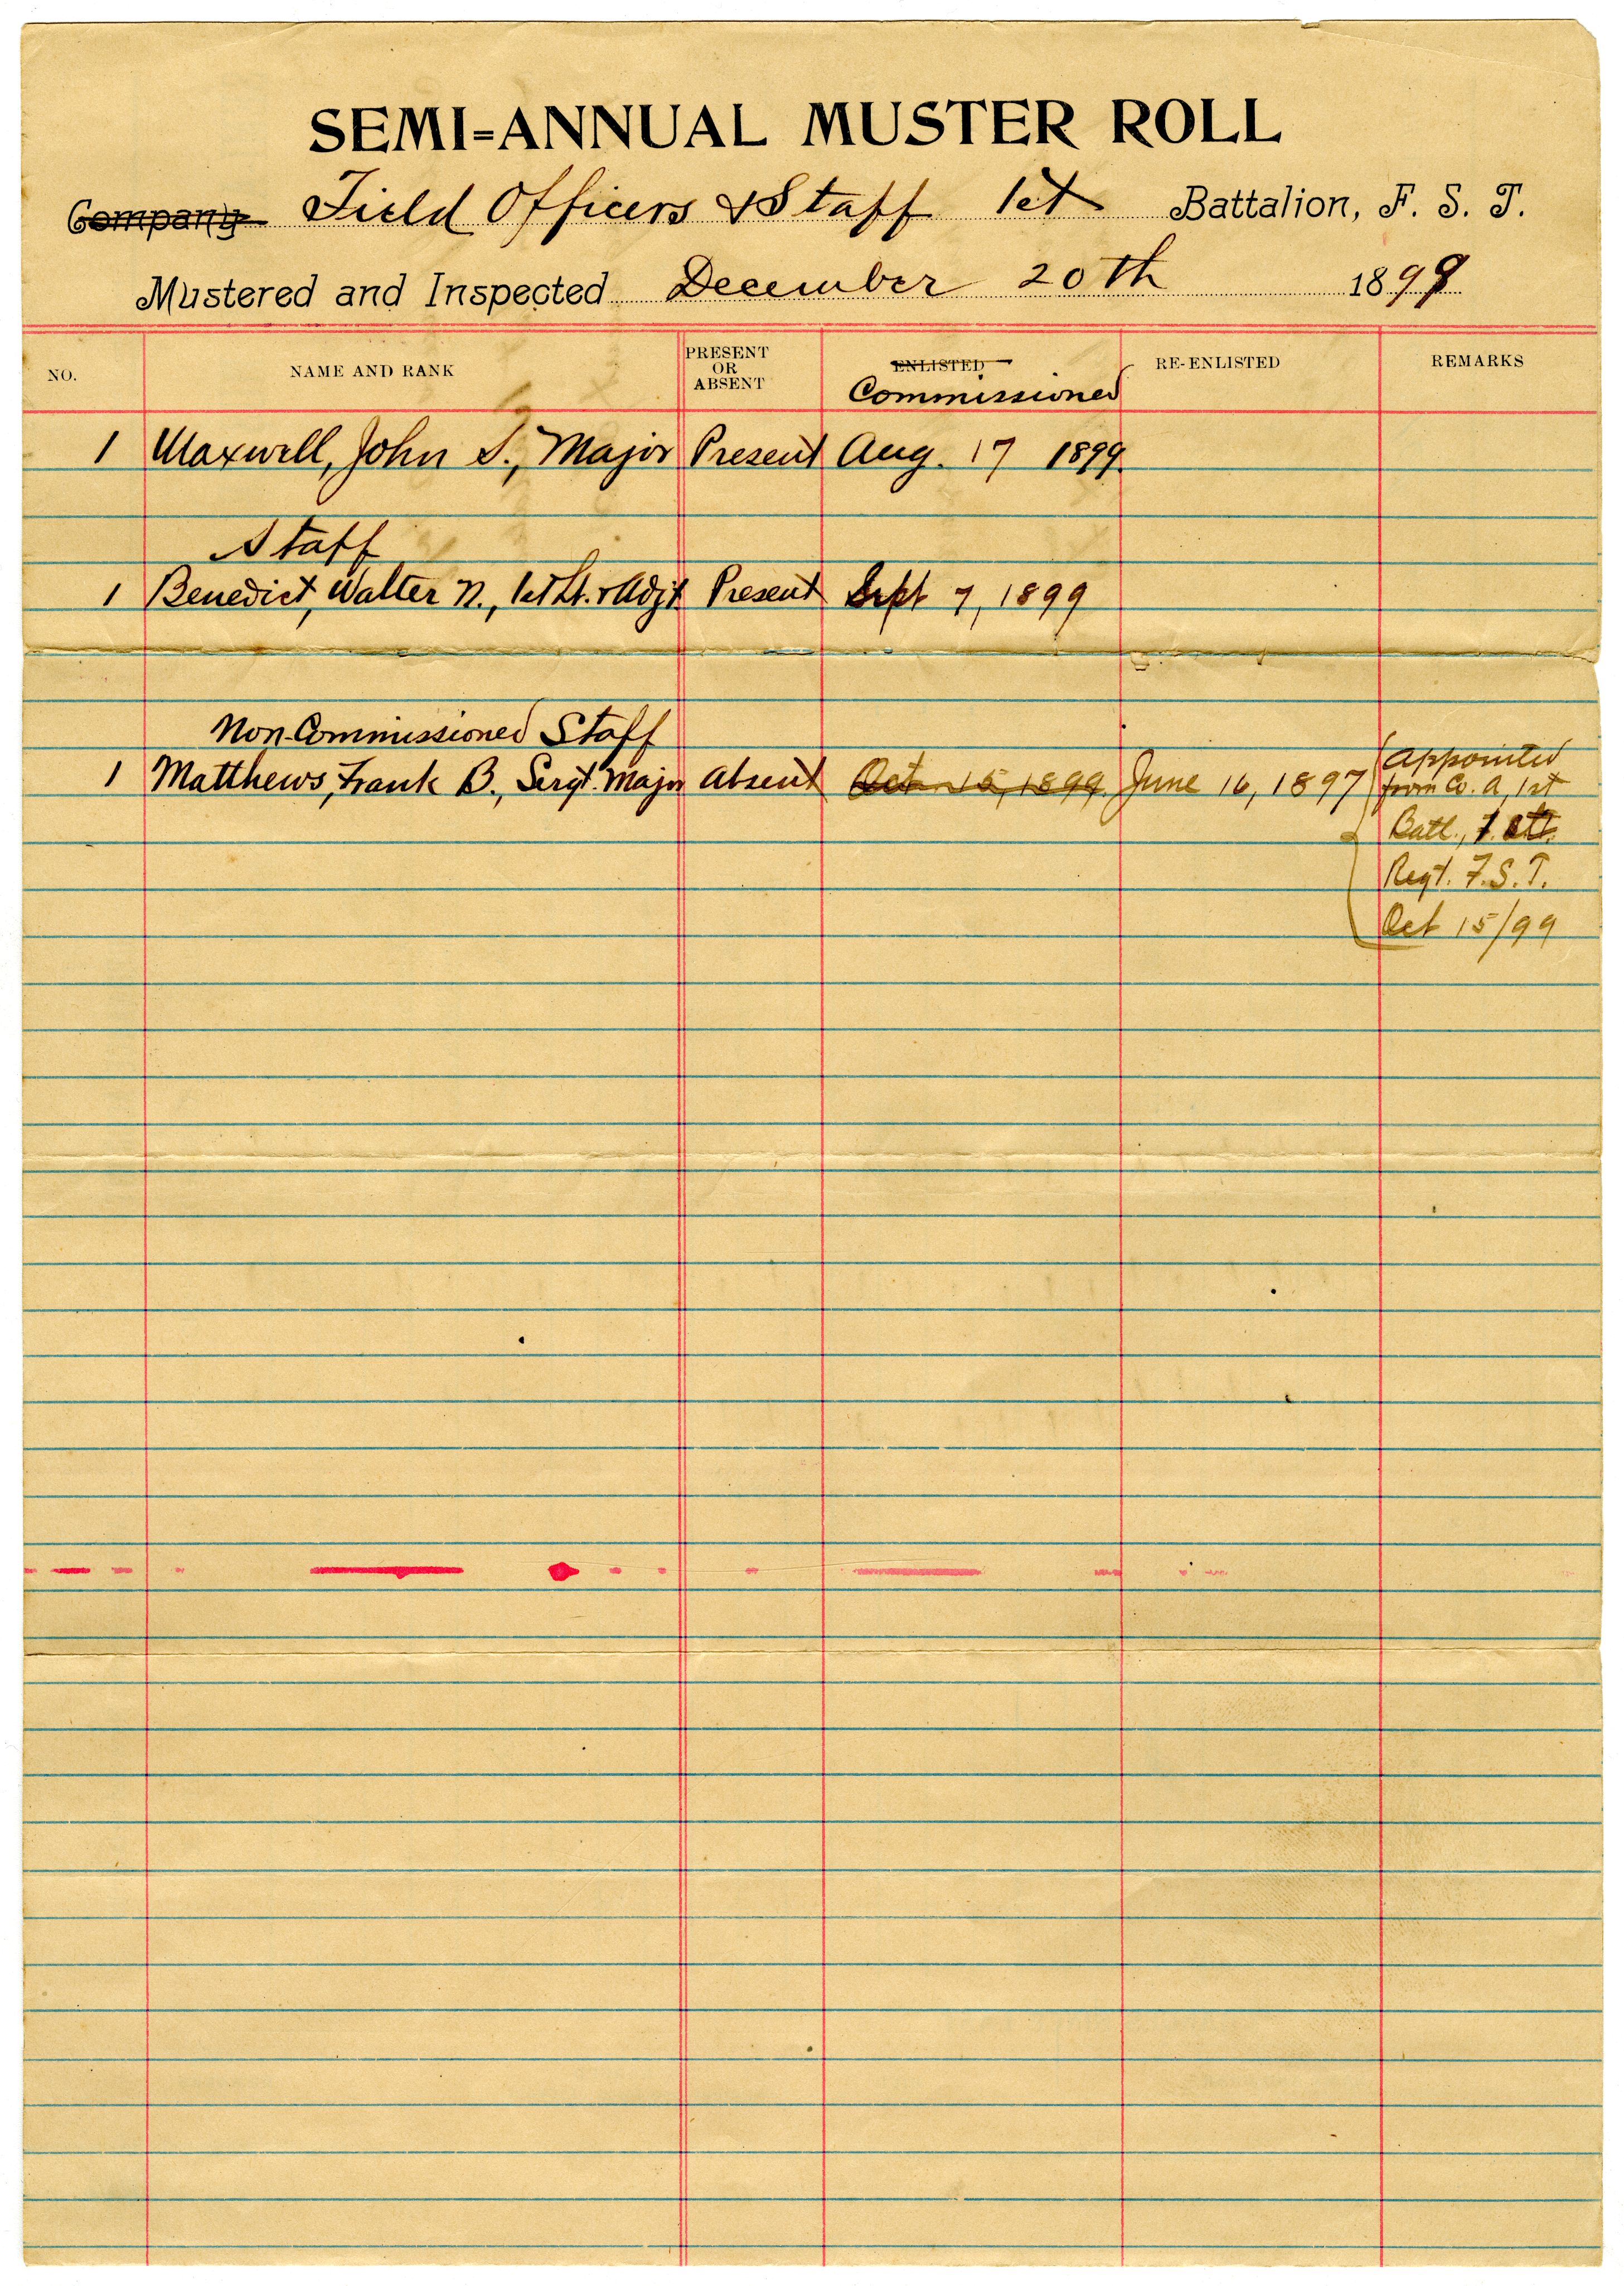 SEMI=ANNUAL MUSTER ROLL
Company Field Officers & Staff 1st Battalion, F. S. T.
Mustered and Inspected December 20th 1899
NO. NAME AND RANK PRESENT OR ABSENT ENLISTED Commissioned RE-ENLISTED REMARKS
1 Maxwell, John S., Major Present Aug. 17 1899
Staff
1 Benedict, Walter N., 1st Lt. & Adjt Present Sept 7, 1899
Non-Commissioned Staff
1 Matthews, Frank B., Sergt. Major Absent Oct 15, 1899 June 16, 1897 Appointed
from Co. A, 1st
Batl.,
Regt. F.S.T.
Oct 15/99